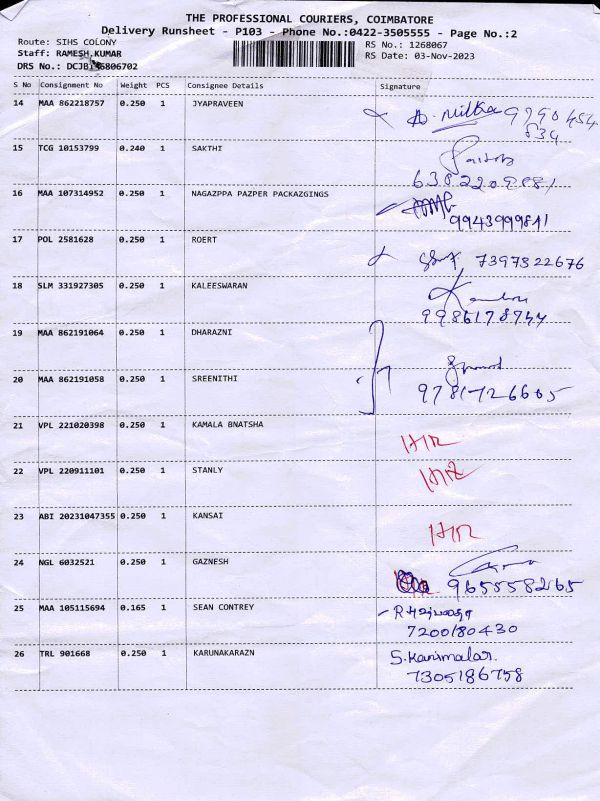 THE PROFESSIONAL COURIERS, COIMBATORE
Delivery Runsheet - P103 - Phone No.:0422-3505555 - Page No.:2
Route: SIHS COLONY RS No.: 1268067
Staff: RAMESH KUMAR RS Date: 03-Nov-2023
DRS No.: 6806702
S No Consignment No Weight PCS Consignee Details Signature
14 MAA 862218757 0.250 1 JYAPRAVEEN
9790454
834
15 TCG 10153799 0.240 1 SAKTHI
16 MAA 107314952 0.250 1 NAGAZPPA PAZPER PACKAZGINGS
9943999841
17 POL 2581628 0.250 1 ROERT 7397322676
18 SLM 331927305 0.250 1 KALEESWARAN
9986178744
19 MAA 862191064 0.250 1 DHARAZNI
20 MAA 862191058 0.250 1 SREENITHI
9781726605
21 VPL 221020398 0.250 1 KAMALA BNATSHA
22 VPL 220911101 0.250 1 STANLY
23 ABI 20231047355 0.250 1 KANSAI
24 NGL 6032521 0.250 1 GAZNESH
9655558265
25 MAA 105115694 0.165 1 SEAN CONTREY
7200180430
26 TRL 901668 0.250 1 KARUNAKARAZN S. Kanimalar.
7305186758